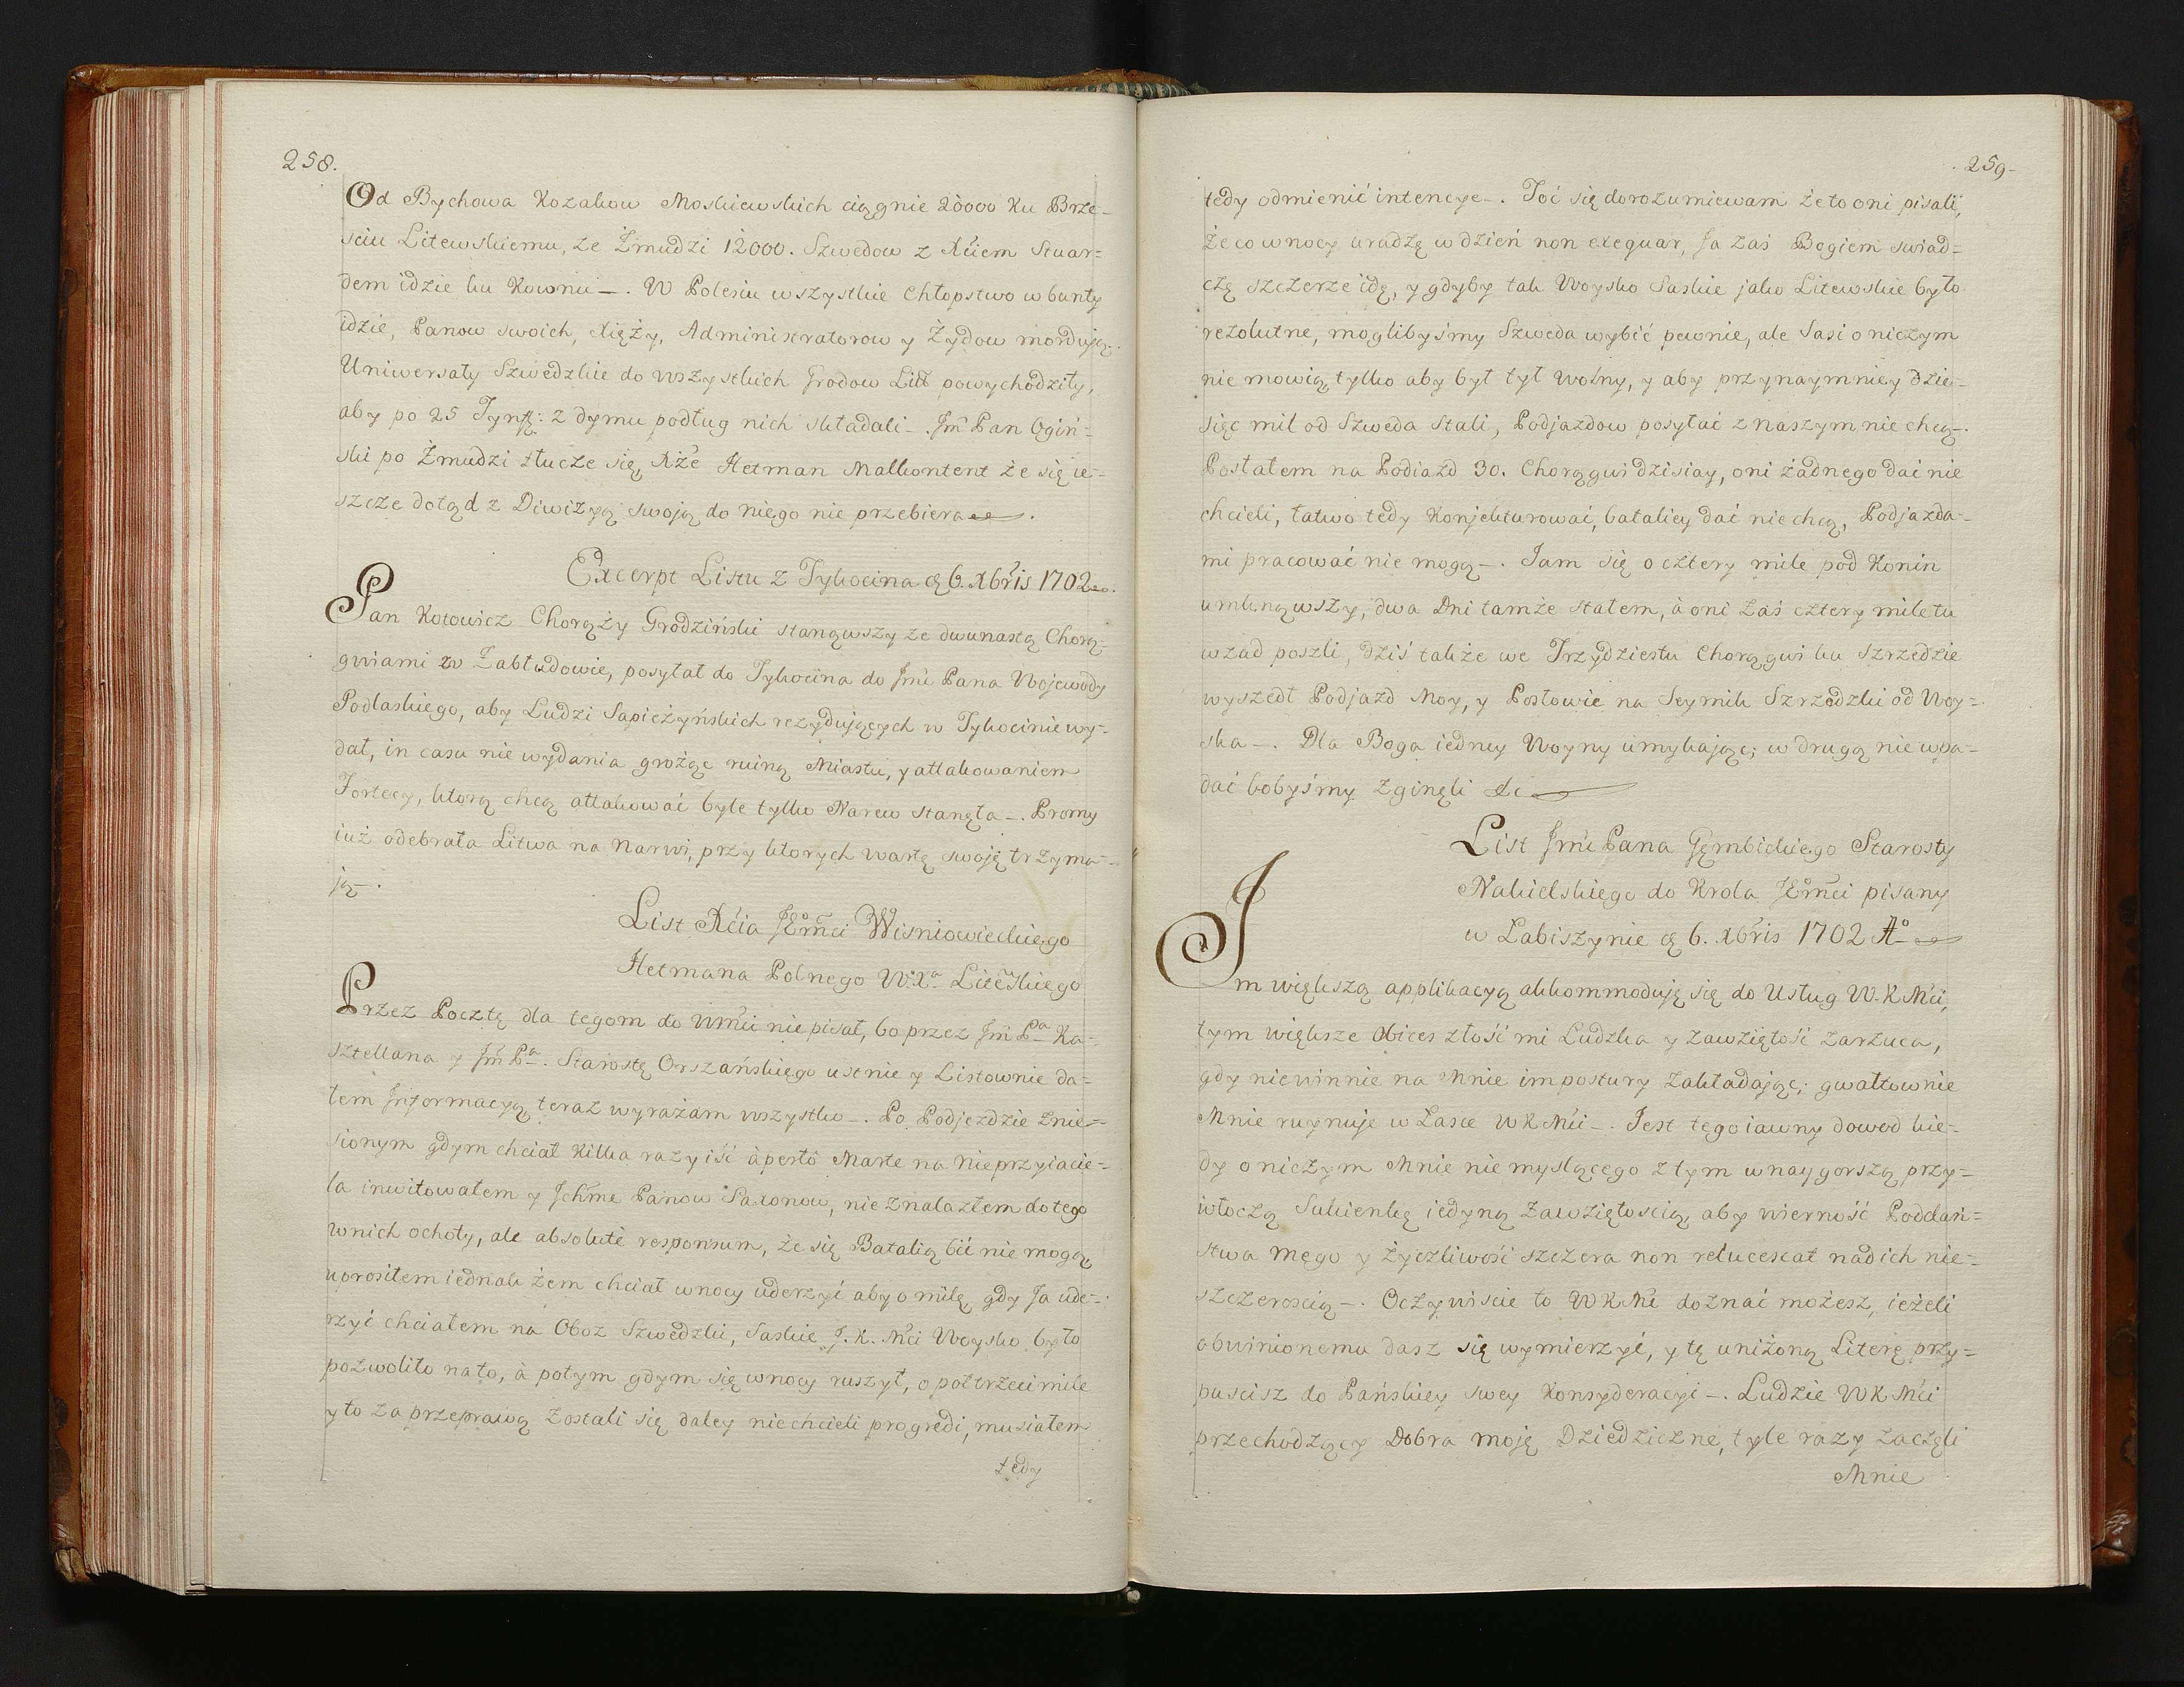 258.
Od Bychowa Kozakow Moskiewskich ciągnie 20000 Ku Brze-
sciu Litewskiemu, ze Żmudzi 12000. Szwedow z Xciem Stuar=
dem idzie ku Kownu —. W Polesiu wszystkie Chłopstwo w bunty
idzie, Panow swoich, Xięży, Administratorow y Żydow mordują.
Uniwersały Szwedzkie do wszystkich Grodow Litt powychodziły,
aby po 25 Tynff: z dymu podług nich składali —. Jm̃ Pan Ogiń-
ski po Żmudzi tłucze się, Xże Hetman Malkontent że się ie-
szcze dotąd z Diwizyą swoją do niego nie przebiera.
Excerpt Listu z Tykocina 6. Xbris 1702.
Pan Kotowicz Chorąży Grodziński stanąwszy ze dwunastą Chorą-
gwiami w Zabłudowie, posyłał do Tykocina do Jm̃ Pana Wojewody
Podlaskiego, aby Ludzi Sapieżyńskich rezydujących w Tykocinie wy-
dał, in casu nie wydania grożąc ruiną Miastu, y attakowaniem
Fortecy, ktorą chcą attakować byle tylko Narew stanęła —. Promy
iuż odebrała Litwa na Narwi, przy ktorych wartę swoję trzyma-
ją —.
List Xcia JEm̃ci Wisniowieckiego
Hetmana Polnego W. Xa Litēskiego
Przez Pocztę dla tegom do Wm̃ci nie pisał, bo przez Jm̃ Pa Ka-
sztellana y Jm̃ Pa. Starostę Orszańskiego ustnie y Listownie da-
łem Informacyą, teraz wyrażam wszystko —. Po Podjezdzie znie=
sionym gdym chciał kilka razy iść apertô Marte na nieprzyiacie=
la inwitowałem y Jchm̃e Panow Saxonow, nie znalazłem do tego
w nich ochoty, ale absolutè responsum, że się Batalią bić nie mogą,
uprosiłem iednak żem chciał w nocy uderzyć aby o milę, gdy Ja ude-
rzyć chciałem na Oboz Szwedzki, Saskie J. K. Mci Woysko było
pozwoliło na to, à potym gdym się w nocy ruszył, o połtrzeci mile
y to za przeprawą zostali się, daley nie chcieli progredi, musiałem
tedy
259-
tedy odmienić intencye —. Toć się dorozumiewam że to oni pisali,
że co w nocy uradzę w dzień non exequar, Ja zaś Bogiem swiad=
czę szczerze idę, y gdyby tak Woysko Saskie jako Litewskie było
rezolutne, moglibyśmy Szweda wybić pewnie, ale Sasi o niczym
nie mowią, tylko aby był tył wolny, y aby przynaymniey dzie-
sięc mil od Szweda stali, Podjazdow posyłać z naszym nie chcą —.
Posłałem na Podiazd 30. Chorągwi dzisiay, oni żadnego dać nie
chcieli, łatwo tedy Konjekturować, bataliey dać nie chcą, Podjazda-
mi pracować nie mogą —. Jam się o cztery mile pod Konin
umknąwszy, dwa Dni tamże stałem, à oni zaś cztery mile tu
wzad poszli, dziś także we Trzydziestu Chorągwi ku Szrzedzie
wyszedł Podjazd Moy, y Posłowie na Seymik Szrzedzki od Woy-
ska —. Dla Boga iedney Woyny umykając; w drugą nie wpa-
dać bobyśmy zginęli &c
List Jm̃ Pana Gęmbickiego Starosty
Nakielskiego do Krola JEm̃ci pisany
w Łabiszynie 6. Xbris 1702 Ao
Im większą applikacyą akkommoduję się do Usług W. K Mci,
tym większe Obices złość mi Ludzka y zawziętość zarzuca,
gdy niewinnie na Mnie impostury zakładając; gwałtownie
Mnie ruynuje w Łasce W K Mci —. Jest tego iawny dowod kie-
dy o niczym Mnie nie myslącego z tym w naygorszą przy=
włoczą Sukienkę iedyną zawziętoscią, aby wierność Poddań=
stwa mego y życzliwość szczera non relucescat nad ich nie=
szczeroscią —. Oczywiscie to W K Mć doznać możesz, ieżeli
obwinionemu dasz się wymierzyć, y tę uniżoną Literę przy=
puscisz do Pańskiey swey Konsyderacyi —. Ludzie W K Mci
przechodzący Dobra moję Dziedziczne, tyle razy zaczęli
Mnie